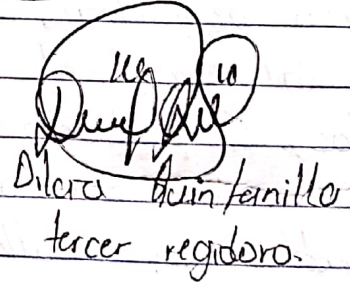 Dilcia Quintanilla
tercer regidora.